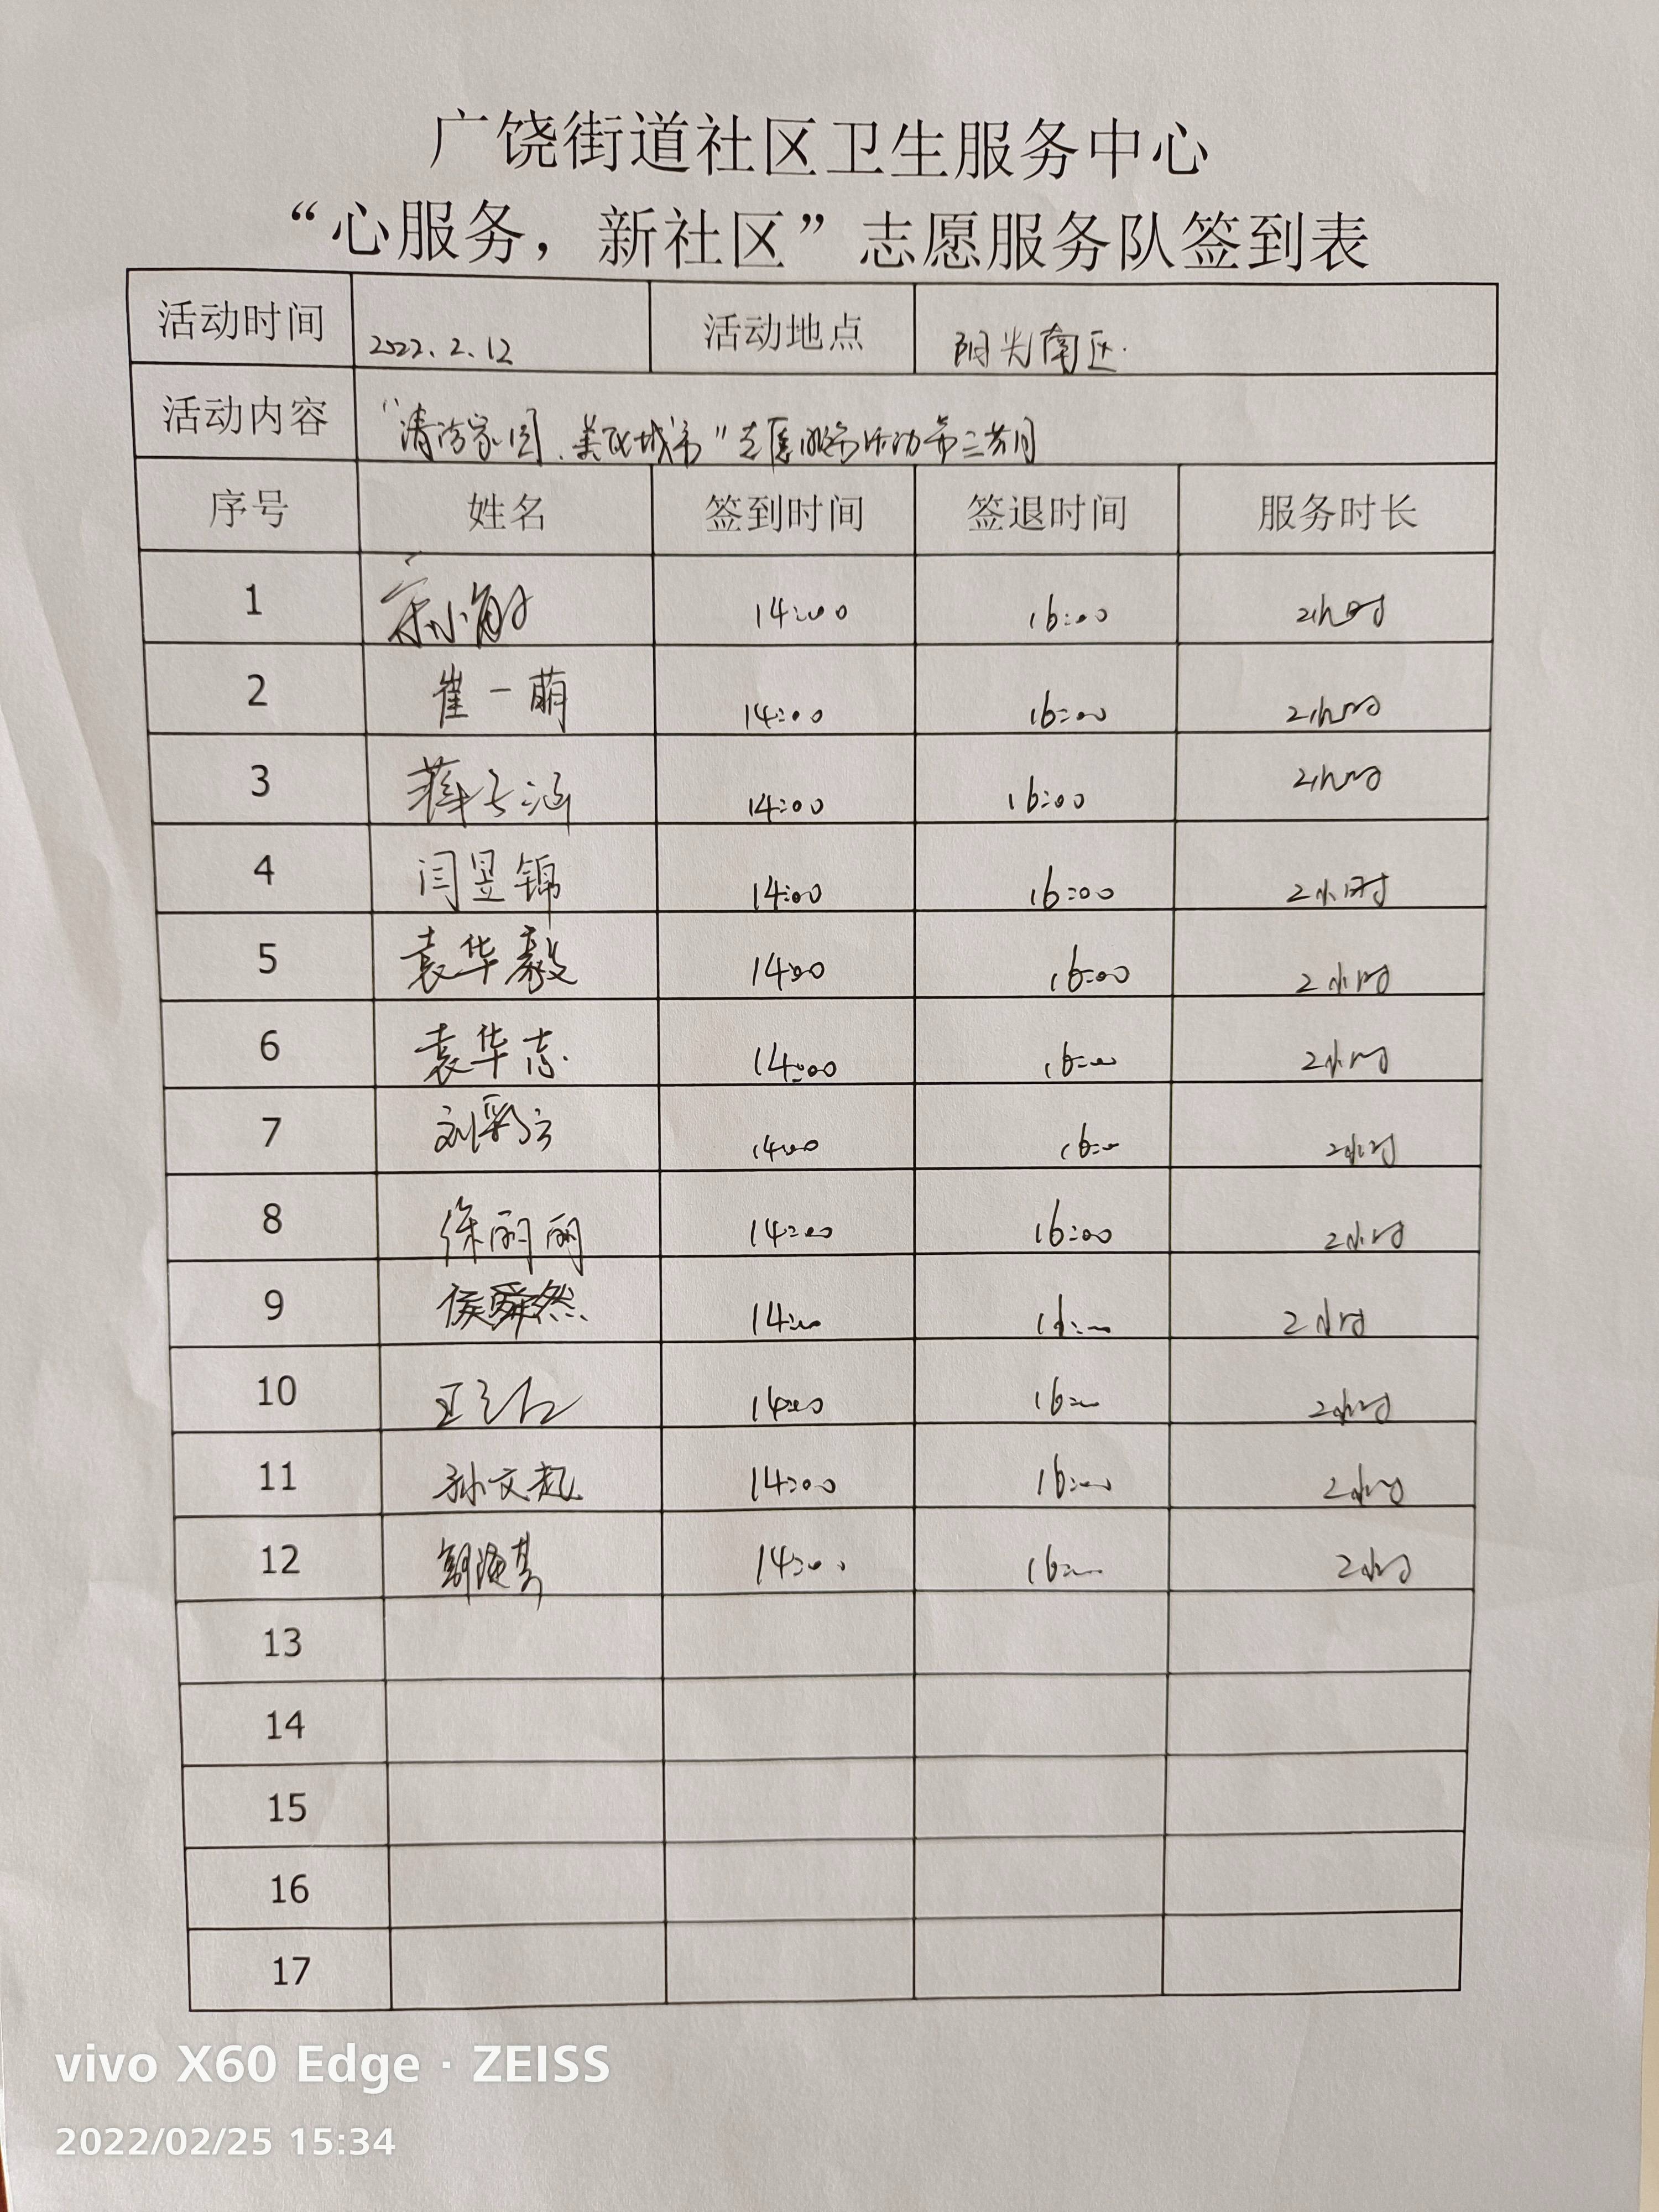 广饶街道社区卫生服务中心
“心服务，新社区”志愿服务队签到表
活动时间 2022.2.12 活动地点 阳光南区
活动内容 “清洁家园、美化城市”志愿服务活动第三共同
序号 姓名 签到时间 签退时间 服务时长
1 14:00 16:00 2小时
2 崔一萌 14:00 16:00 2小时
3 蒋子涵 14:00 16:00 2小时
4 闫昱锦 14:00 16:00 2小时
5 袁华毅 14:00 16:00 2小时
6 袁华志 14:00 16:00 2小时
7 刘彩云 14:00 16:00 2小时
8 徐丽丽 14:00 16:00 2小时
9 侯舜然 14:00 16:00 2小时
10 14:00 16:00 2小时
11 孙文起 14:00 16:00 2小时
12 14:00 16:00 2小时
13
14
15
16
17
vivo X60 Edge · ZEISS
2022/02/25 15:34